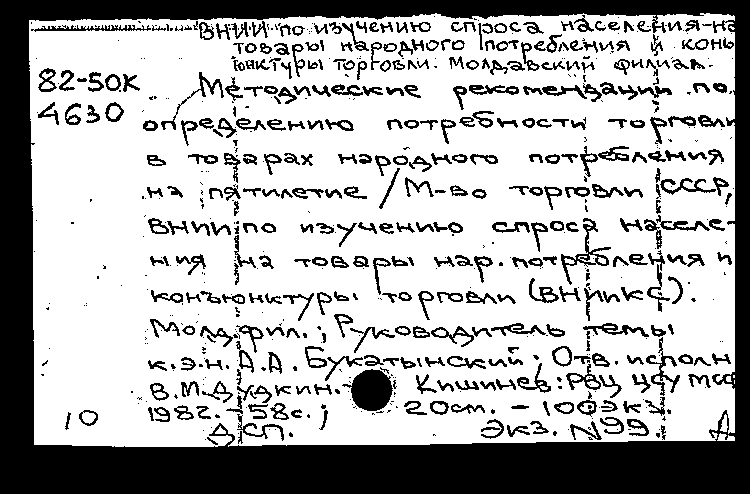 ВНИИ по изучению спроса населения на
товары народного потребления и конъ
юнктуры торговли. Молдавский филиал.
82-50К
Методические рекомендации по
4630
определению потребности торговли
в товарах народного потребления
на пятилетие / М-во торговли СССР,
ВНИИ по изучению спроса населе-
ния на товары нар. потребления и
конъюнктуры торговли (ВНИИКС).
Молд. фил.; Руководитель темы
к.э.н. А.А. Букатынский; Отв. исполн
В.М. Дудкин. - Кишинев: РВЦ ЦСУ МССР
1982. - 58с.; 20см. - 100экз.
10
ДСП. Экз. N99.